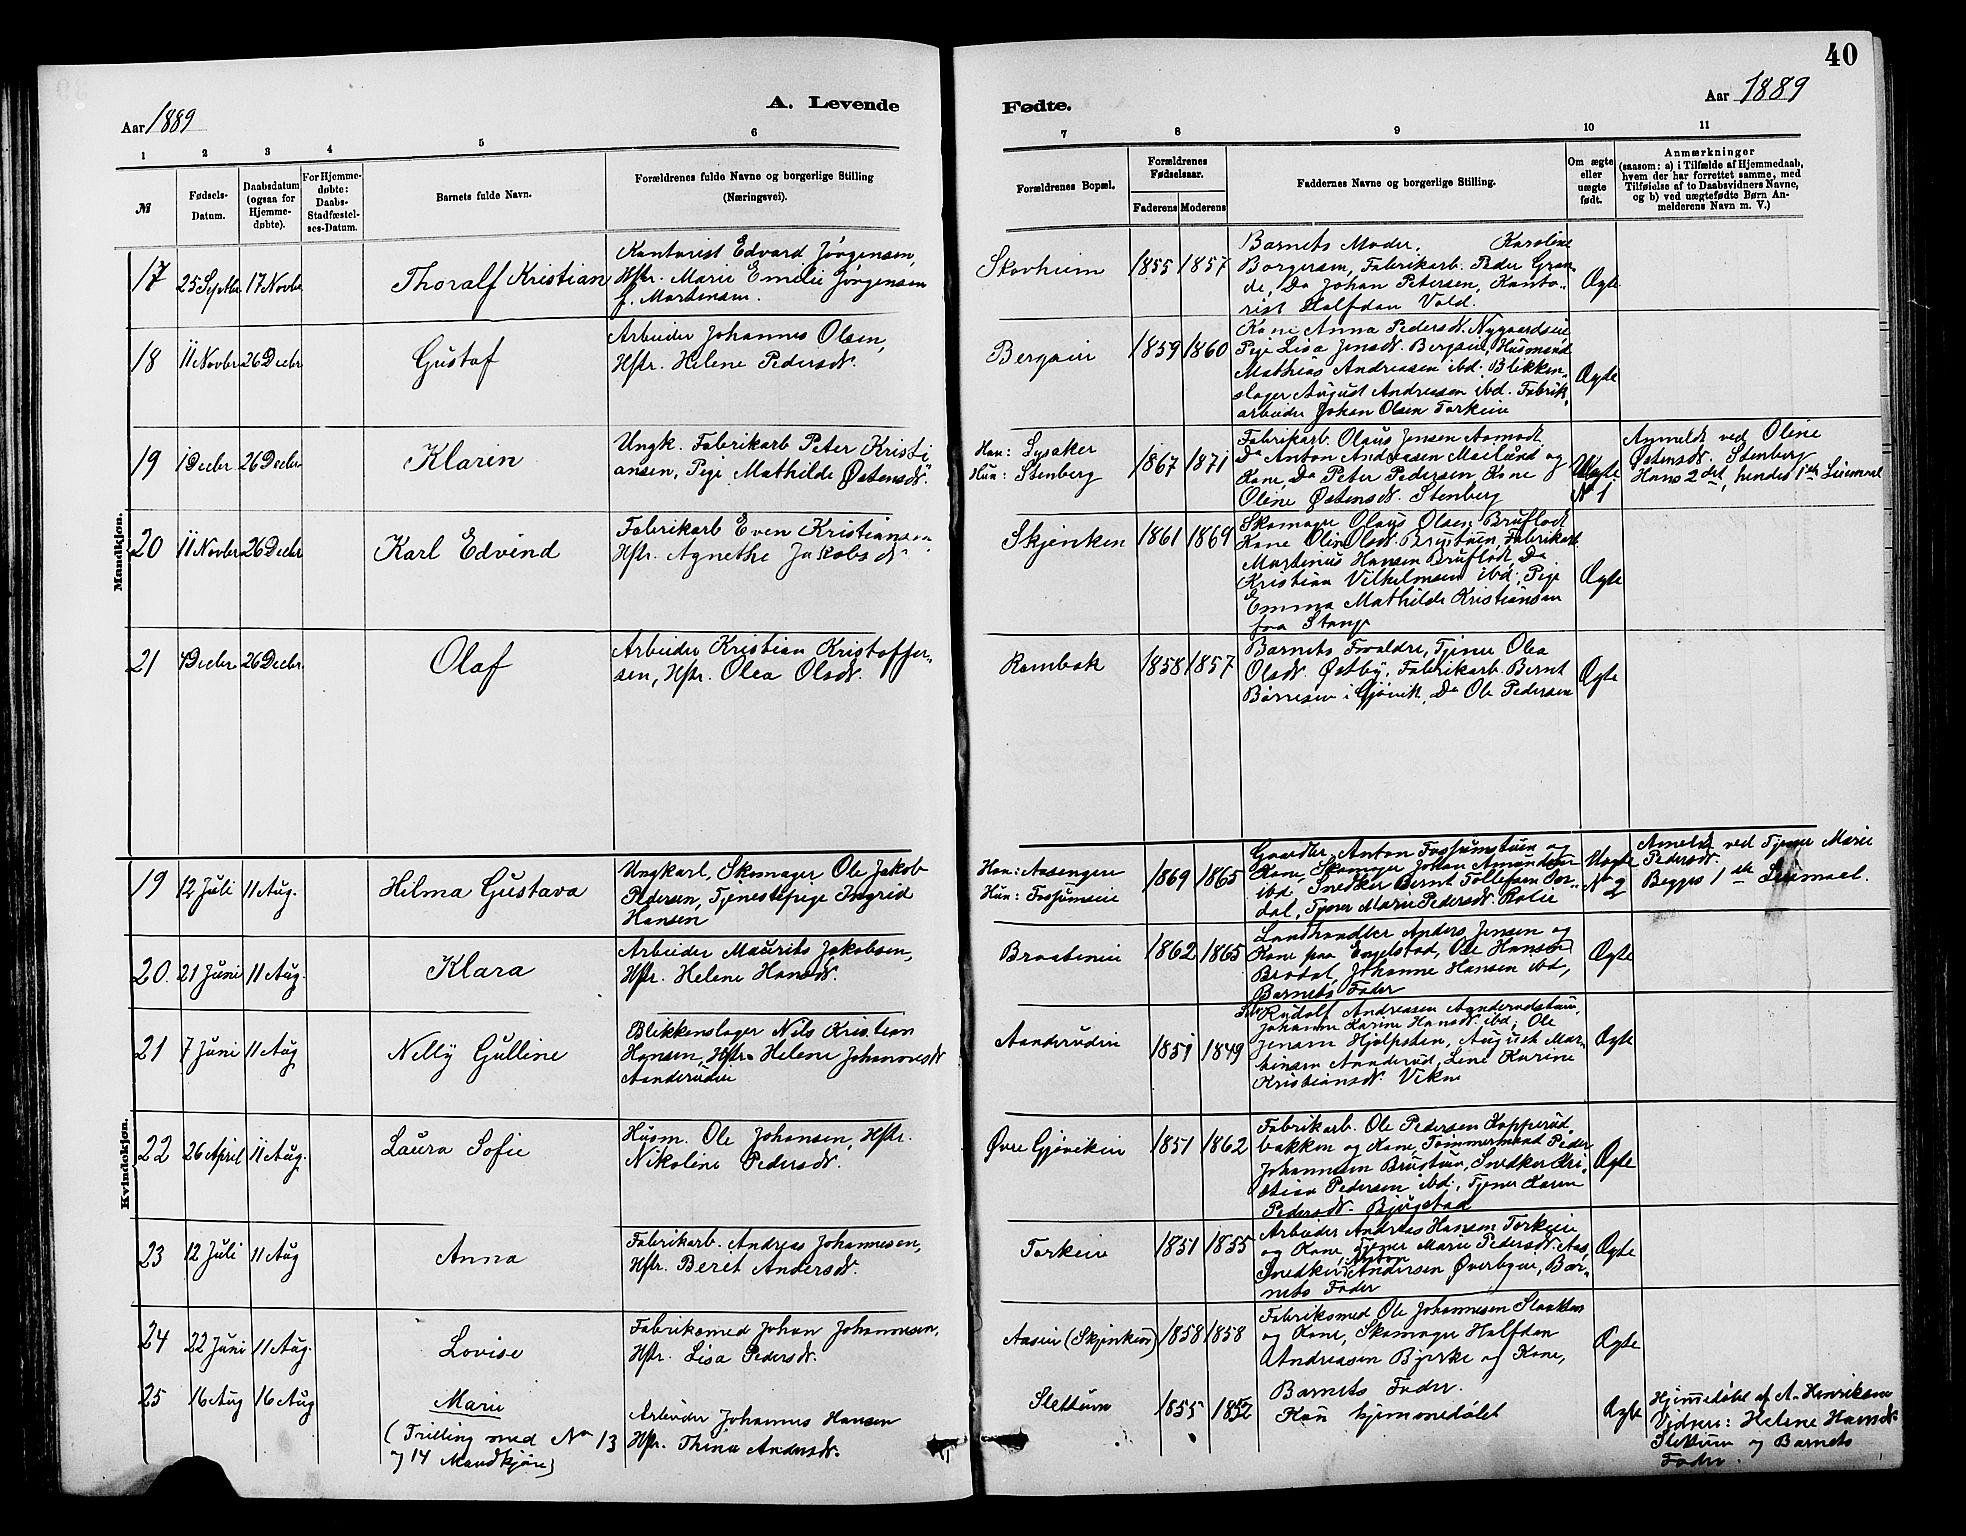 40
Aar 1889
A. Levende
Fødte.
Aar 1889
1 2 3 4 5 6 7 8 9 10 11
№
Fødsels-
Datum.
Daabsdatum
(ogsaa for
Hjemme-
døbte).
For Hjemme-
døbte:
Daabs-
Stadfæstel-
ses-Datum.
Barnets fulde Navn.
Forældrenes fulde Navne og borgerlige Stilling
(Næringsvei).
Forældrenes Bopæl.
Forældrenes
Fødselsaar.
Faderens Moderens
Faddernes Navne og borgerlige Stilling.
Om ægte
eller
uægte
født.
Anmærkninger
(saasom: a) i Tilfælde af Hjemmedaab,
hvem der har forrettet samme, med
Tilføielse af to Daabsvidners Navne,
og b) ved uægtefødte Børn An-
melderens Navn m. V.)
Mandkjøn.
17 25 Septbr 17 Novbr
Thoralf Kristian
Kontorist Edvard Jørgensen,
Hstr. Marie Emilie Jørgensen
f. Mortensen.
Skovheim
1855 1857
Barnets Moder, Karoline
Borgersen, Fabrikarb. Peder Gran-
de, Do Johan Petersen, Konto-
rist Halfdan Vold.
Ægte
18 11 Novbr 26 Decbr
Gustaf
Arbeider Johannes Olsen,
Hstr. Helene Pedersdt.
Bergseie
1859 1860
Kone Anna Pedersdt. Nygaardseie
Pige Lisa Jensdt. Bergseie, Husmand
Mathias Andreasen ibd. Blikken-
slager August Andreasen ibd. Fabrik-
arbeider Johan Olsen Torkeie
Ægte
19 1 Decbr 26 Decbr
Klarin
Ungk. Fabrikarb Peter Kristi
ansen, Pige Mathilde Østensdt.
Han: Lysaker
Hun: Stenberg
1867 1871
Fabrikarb. Olaus Jensen Aamodt
Do Anton Andreasen Mailund og
Kone, Do Peter Pedersen, Kone
Oline Østensdt. Stenberg
Uægte
No 1
Anmeldt ved Oline
Østensdt. Stenberg
Hans 2det, hendes 1ste Leiermaal
20 11 Novbr 26 Decbr
Karl Edvind
Fabrikarb Even Kristiansen
Hstr. Agnethe Jakobsdt.
Skjenken
1861 1869
Skomager Olaus Olsen Bruflodt
Kone Oline Olsdt. Brustuen, Fabrikarb.
Martinius Hansen Bruflodt, Do
Kristian Vilhelmsen ibd. Pige
Emma Mathilde Kristiansen
fra Stange
Ægte
21 4 Decbr 26 Decbr
Olaf
Arbeider Kristian Kristoffer-
sen, Hstr. Olea Olsdt.
Rambæk
1858 1857
Barnets Forældre, Tjener Olea
Olsdt. Østby, Fabrikarb. Bernt
Børresen i Gjøvik, Do Ole Pedersen
Ægte
Kvindekjøn.
19 12 Juli 11 Aug.
Hilma Gustava
Ungkarl, Skomager Ole Jakob
Pedersen, Tjenestepige Ingrid
Hansen
Han: Aasengere
Hun: Fossumseie
1869 1865
Gaardbr. Anton Fossumstuen og
Kone, Skomager Johan Amundsen
ibd Snedker Bernt Tollefsen
dal, Tjener Marie Pedersdt.
Uægte
No 2
Anmeldt ved Tjener Marie
Pedersdt.
Begges 1ste Leiermaal.
20. 21 Juni 11 Aug.
Klara
Arbeider Maurits Jakobsen,
Hstr. Helene Hansdt.
Braatenеie
1862 1865
Landhandler Anders Jensen og
Kone paa Engelstad, Ole Hansen
Brodal, Johanne Hansen ibd,
Barnets Fader
Ægte
21 7 Juni 11 Aug
Nelly Gulline
Blikkenslager Nils Kristian
Hansen, Hstr. Helene Johannesdt
Aanderudeie
Aanderudeie
1851 1849
Rudolf Andreasen Aanderudstuen,
Johanne Karine Hansdt. ibd, Ole
Jensen Hjelpsten, August Mar-
tinsen Aanderud, Lene Karine
Kristiansdt. Vikne
Ægte
22 26 April 11 Aug.
Laura Sofie
Husm. Ole Johansen, Hstr.
Nikoline Pedersdt.
Øvre Gjøvikeie
1851 1862
Fabrikarb. Ole Pedersen Kopperud-
bakken og Kone, Tømmermand Peder
Johannesen Brustuen, Snedker Kri-
stian Pedersen ibd, Tjener Karen
Pedersdt. Bjugstad
Ægte
23 12 Juli 11 Aug
Anna
Fabrikarb. Andreas Johannesen,
Hstr. Beret Andersdt.
Torkeie
1851 1855
Arbeider Andreas Hansen Torkeie
og Kone, Tjener Marie Pedersdt. Aas,
Snedker Anton Andersen Øverbyeie, Bar-
nets Fader
Ægte
24 22 Juni 11 Aug.
Lovise
Fabriksmed Johan Johannesen,
Hstr. Lisa Pedersdt.
Aaseie (Skjenken)
1858 1858
Fabriksmed Ole Johannesen Slaatten
og Kone, Skomager Halfdan
Andreasen Bjerke og Kone,
Barnets Fader.
Ægte
25 16 Aug 16 Aug
Marie
(Trilling med No 13
og 14 Mandkjøn)
Arbeider Johannes Hansen
Hstr. Thina Andersdt.
Slettum
1855 1852
Kun hjemmedøbt
Ægte
Hjemmedøbt af A. Henriksen
Vidner: Helene Hansdt.
Slettum og Barnets
Fader.